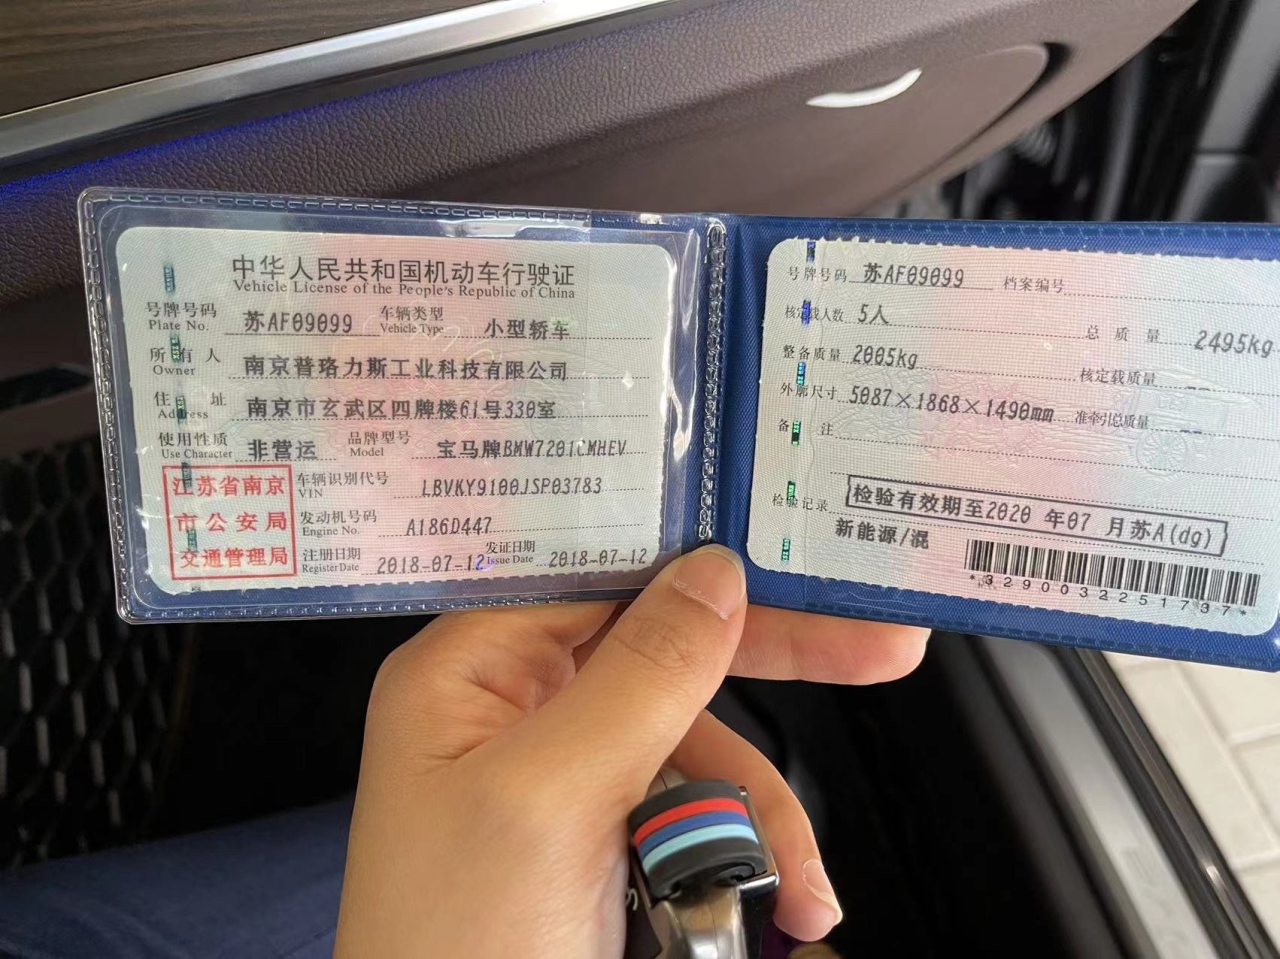 中华人民共和国机动车行驶证
Vehicle License of the People's Republic of China
号牌号码 苏AF09099 车辆类型 小型轿车
Plate No. Vehicle Type
所有人 南京普珞力斯工业科技有限公司
Owner
住址 南京市玄武区四牌楼61号330室
Address
使用性质 非营运 品牌型号 宝马牌BMW7201CMHEV
Use Character Model
江苏省南京
市公安局
交通管理局
车辆识别代号 LBVKY9100JSP03783
VIN
发动机号码 A186D447
Engine No.
注册日期 2018-07-12 发证日期 2018-07-12
Register Date Issue Date
号牌号码 苏AF09099 档案编号
核定载人数 5人 总质量 2495kg
整备质量 2005kg 核定载质量 --
外廓尺寸 5087×1868×1490mm 准牵引总质量 --
备注
检验记录 检验有效期至2020年07月苏A(dg)
新能源/混
*3290032251737*